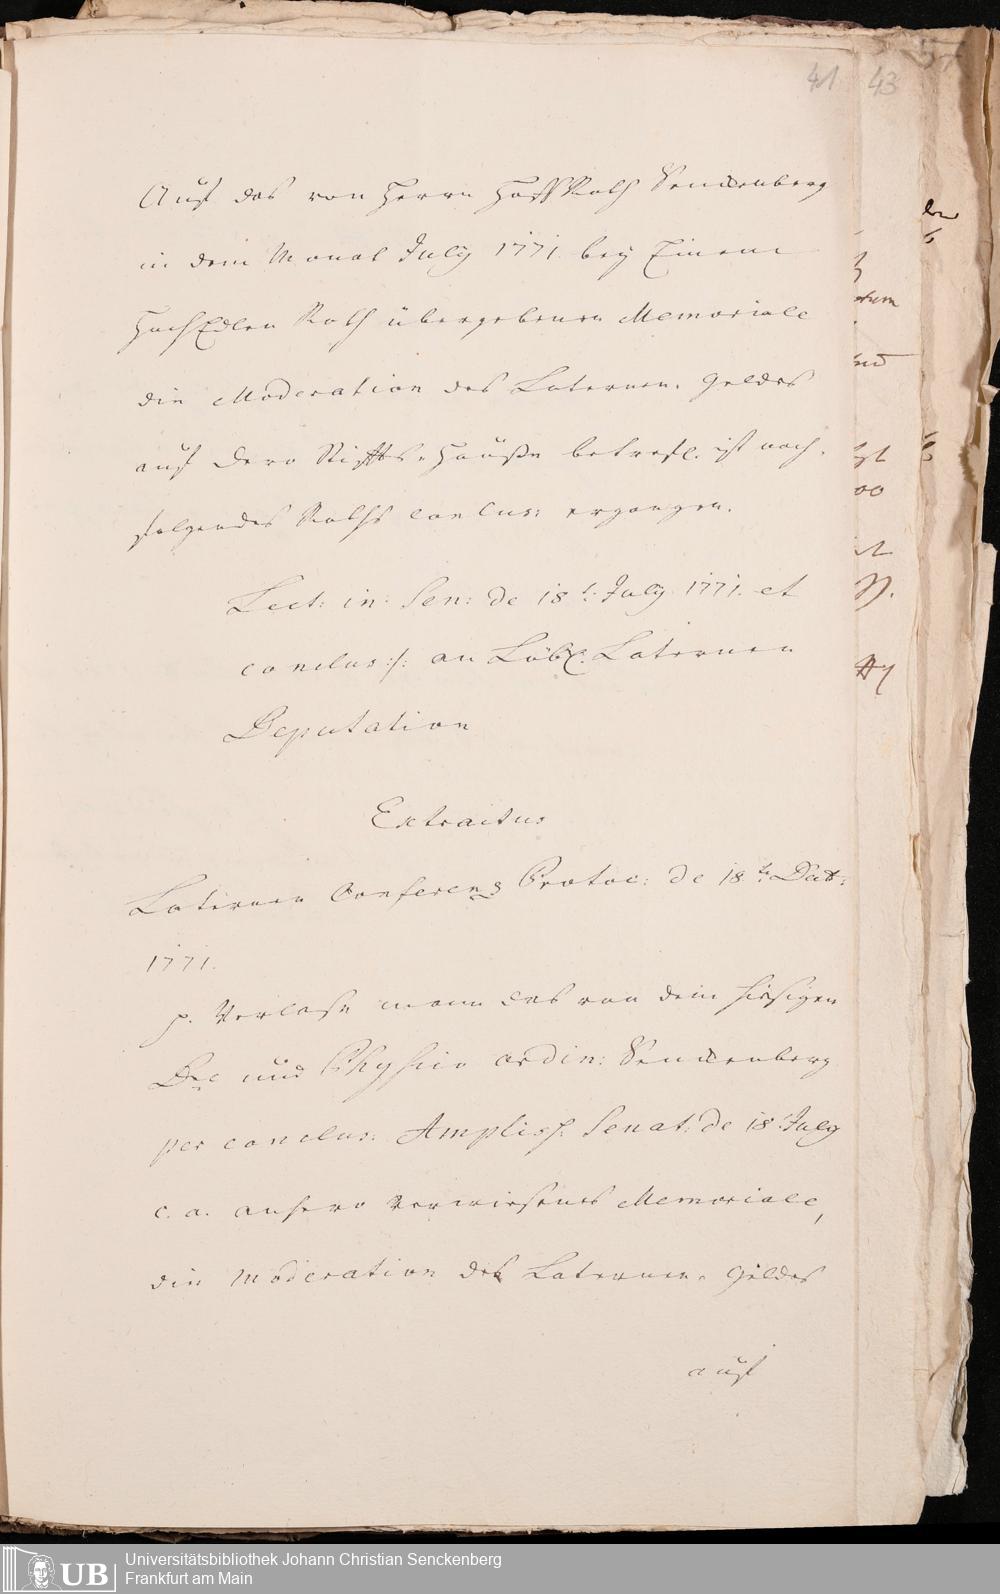 41 43
Auf das von Herrn HoffRath Senckenberg
in dem Monat July 1771. bey Einem
HochEdlen Rath übergebenen Memoriale
die Moderation des Laternen-Geldes
auf dero Stiffts-Hauße betrefl. ist nach-
folgendes Raths Conclus: ergangen.
Lect: in: Sen: de 18t. July 1771. et
conclus:/: an Löbl. Laternen
Deputation
Extractus
Laternen Conferenz Protoc: de 18te
1771.
p. Verlase mann das von dem hiesigen
und Physico ordin: Senckenberg
per conclus: Ampliss: Senat: de 18. July
c. a. anhero verwiesenes Memoriale,
die Moderation des Laternen-Geldes
auf
Universitätsbibliothek Johann Christian Senckenberg
Frankfurt am Main
UB